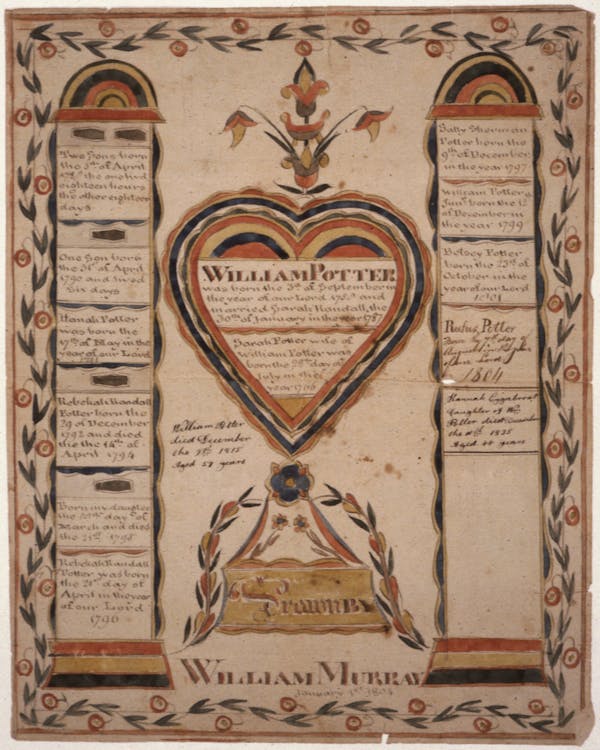 Two Sons born
the 5th of April
the one lived
eighteen hours
the other eighteen
days
One Son born
the 31st of April
1790 and lived
Six days
Hanah Potter
was born the
17th of May in the
year of our Lord
Rebekah Randall
Potter born the
29 of December
1792 and died
the the 16th of
April 1794
Born my daughter
the day of
March and died
the 21st 1795
Rebekah Randall
Potter was born
the 21st day of
April in the year
of our Lord
1796
WILLIAM POTTER
was born the 3d of September in
the year of our Lord and
married Sarah Randall, the
30th of January in the year 1787
Sarah Potter wife of
William Potter was
born the 28th day of
July in the
year 1766
William Potter
died December
the 1815
Aged 57 years
Drawn By
WILLIAM MURRAY
January 1st 1804
Sally Sherman
Potter born the
9th of December
in the year 1797
William Potter
Junr born the 12
of December in
the year 1799
Betsey Potter
born the 23rd of
October in the
year of our Lord
1801
Rufus Potter
Born day of
August in
of our Lord
1804
Hannah
Daughter of Wm
Potter died
the 1835
Aged 44 years